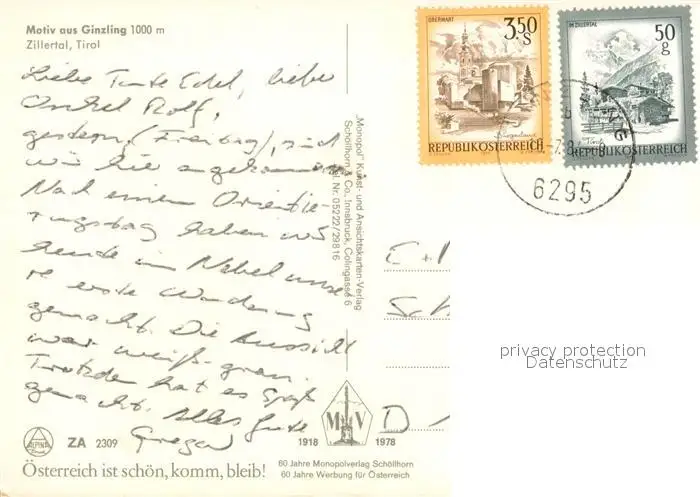 Motiv aus Ginzling 1000 m
Zillertal, Tirol
Liebe Tante Edel, liebe
Onkel Rolf,
gestern (Freitag) sind
wir hier angekommen.
Nach einem Orientie-
rungstag haben wir
heute im Nebel unse
re erste Wanderung
gemacht. Die Aussicht
war weiß-grau.
Trotzdem hat es Spaß
gemacht. Alles Gute
Gregor
ALPINA
ZA 2309
Österreich ist schön, komm, bleib!
„Monopol" Kunst- und Ansichtskarten-Verlag
Schöllhorn & Co., Innsbruck, Colingasse 6
Tel. Nr. 05222/29816
M V
1918 1978
60 Jahre Monopolverlag Schöllhorn
60 Jahre Werbung für Österreich
OBERWART
3.50 S
Burgenland
REPUBLIK ÖSTERREICH
IM ZILLERTAL
50 g
Tirol
REPUBLIK ÖSTERREICH
6295
E+
Sch
D
privacy protection
Datenschutz